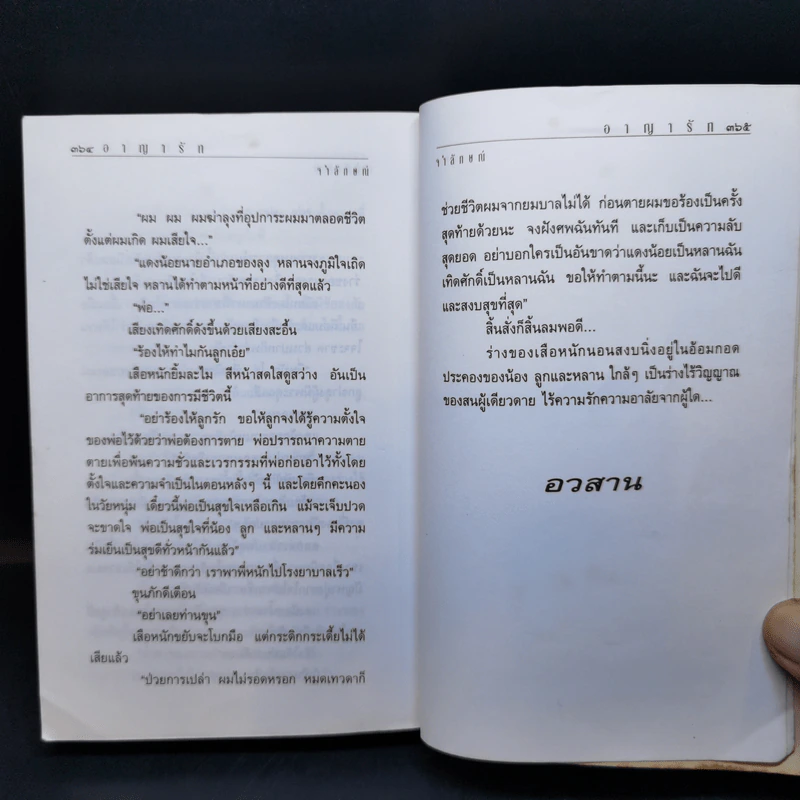 ๓๖๔ อาญารัก
จำลักษณ์
"ผม ผม ผมฆ่าลุงที่อุปการะผมมาตลอดชีวิต
ตั้งแต่ผมเกิด ผมเสียใจ..."
"แดงน้อยนายอำเภอของลุง หลานจงภูมิใจเถิด
ไม่ใช่เสียใจ หลานได้ทำตามหน้าที่อย่างดีที่สุดแล้ว
"พ่อ..."
เสียงเทิดศักดิ์ดังขึ้นด้วยเสียงสะอื้น
"ร้องไห้ทำไมกันลูกเอ๋ย"
เสือหนักยิ้มละไม สีหน้าสดใสดูสว่าง อันเป็น
อาการสุดท้ายของการมีชีวิตนี้
"อย่าร้องไห้ลูกรัก ขอให้ลูกจงได้รู้ความตั้งใจ
ของพ่อไว้ด้วยว่าพ่อต้องการตาย พ่อปรารถนาความตาย
ตายเพื่อพ้นความชั่วและเวรกรรมที่พ่อก่อเอาไว้ทั้งโดย
ตั้งใจและความจำเป็นในตอนหลังๆ นี้ และโดยคึกคะนอง
ในวัยหนุ่ม เดี๋ยวนี้พ่อเป็นสุขใจเหลือเกิน แม้จะเจ็บปวด
จะขาดใจ พ่อเป็นสุขใจที่น้อง ลูก และหลานๆ มีความ
ร่มเย็นเป็นสุขดีทั่วหน้ากันแล้ว"
"อย่าช้าดีกว่า เราพาพี่หนักไปโรงยาบาลเร็ว"
ขุนภักดีเตือน
"อย่าเลยท่านขุน"
เสือหนักขยับจะโบกมือ แต่กระดิกกระเดี้ยไม่ได้
เสียแล้ว
"ป่วยการเปล่า ผมไม่รอดหรอก หมดเทวดาก็
อาญารัก ๓๖๕
จำลักษณ์
ช่วยชีวิตผมจากยมบาลไม่ได้ ก่อนตายผมขอร้องเป็นครั้ง
สุดท้ายด้วยนะ จงฝังศพฉันทันที และเก็บเป็นความลับ
สุดยอด อย่าบอกใครเป็นอันขาดว่าแดงน้อยเป็นหลานฉัน
เทิดศักดิ์เป็นหลานฉัน ขอให้ทำตามนี้นะ และฉันจะไปดี
และสงบสุขที่สุด"
สิ้นสั่งก็สิ้นลมพอดี...
ร่างของเสือหนักนอนสงบนิ่งอยู่ในอ้อมกอด
ประคองของน้อง ลูกและหลาน ใกล้ๆ เป็นร่างไร้วิญญาณ
ของสนผู้เดียวดาย ไร้ความรักความอาลัยจากผู้ใด...
อวสาน